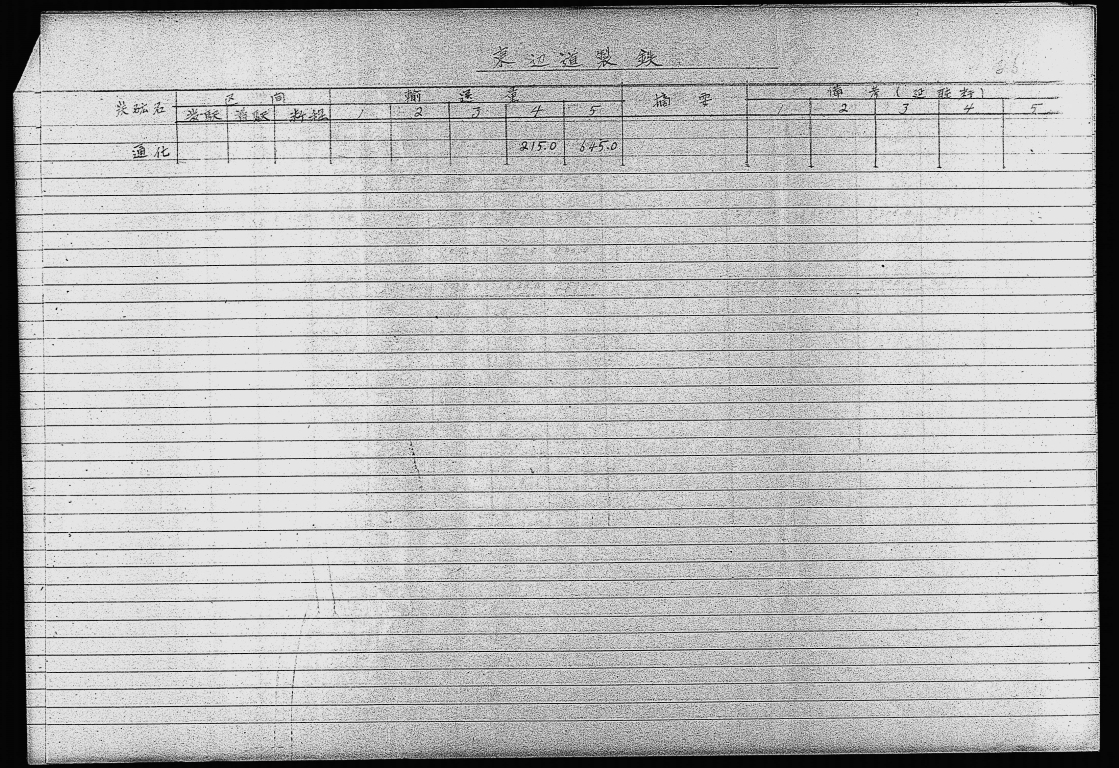 東辺道製鉄
66
炭砿名 区間 輸送量 摘要 備考(延瓲粁)
発駅 着駅 粁程 1 2 3 4 5 1 2 3 4 5
通化 215.0 645.0